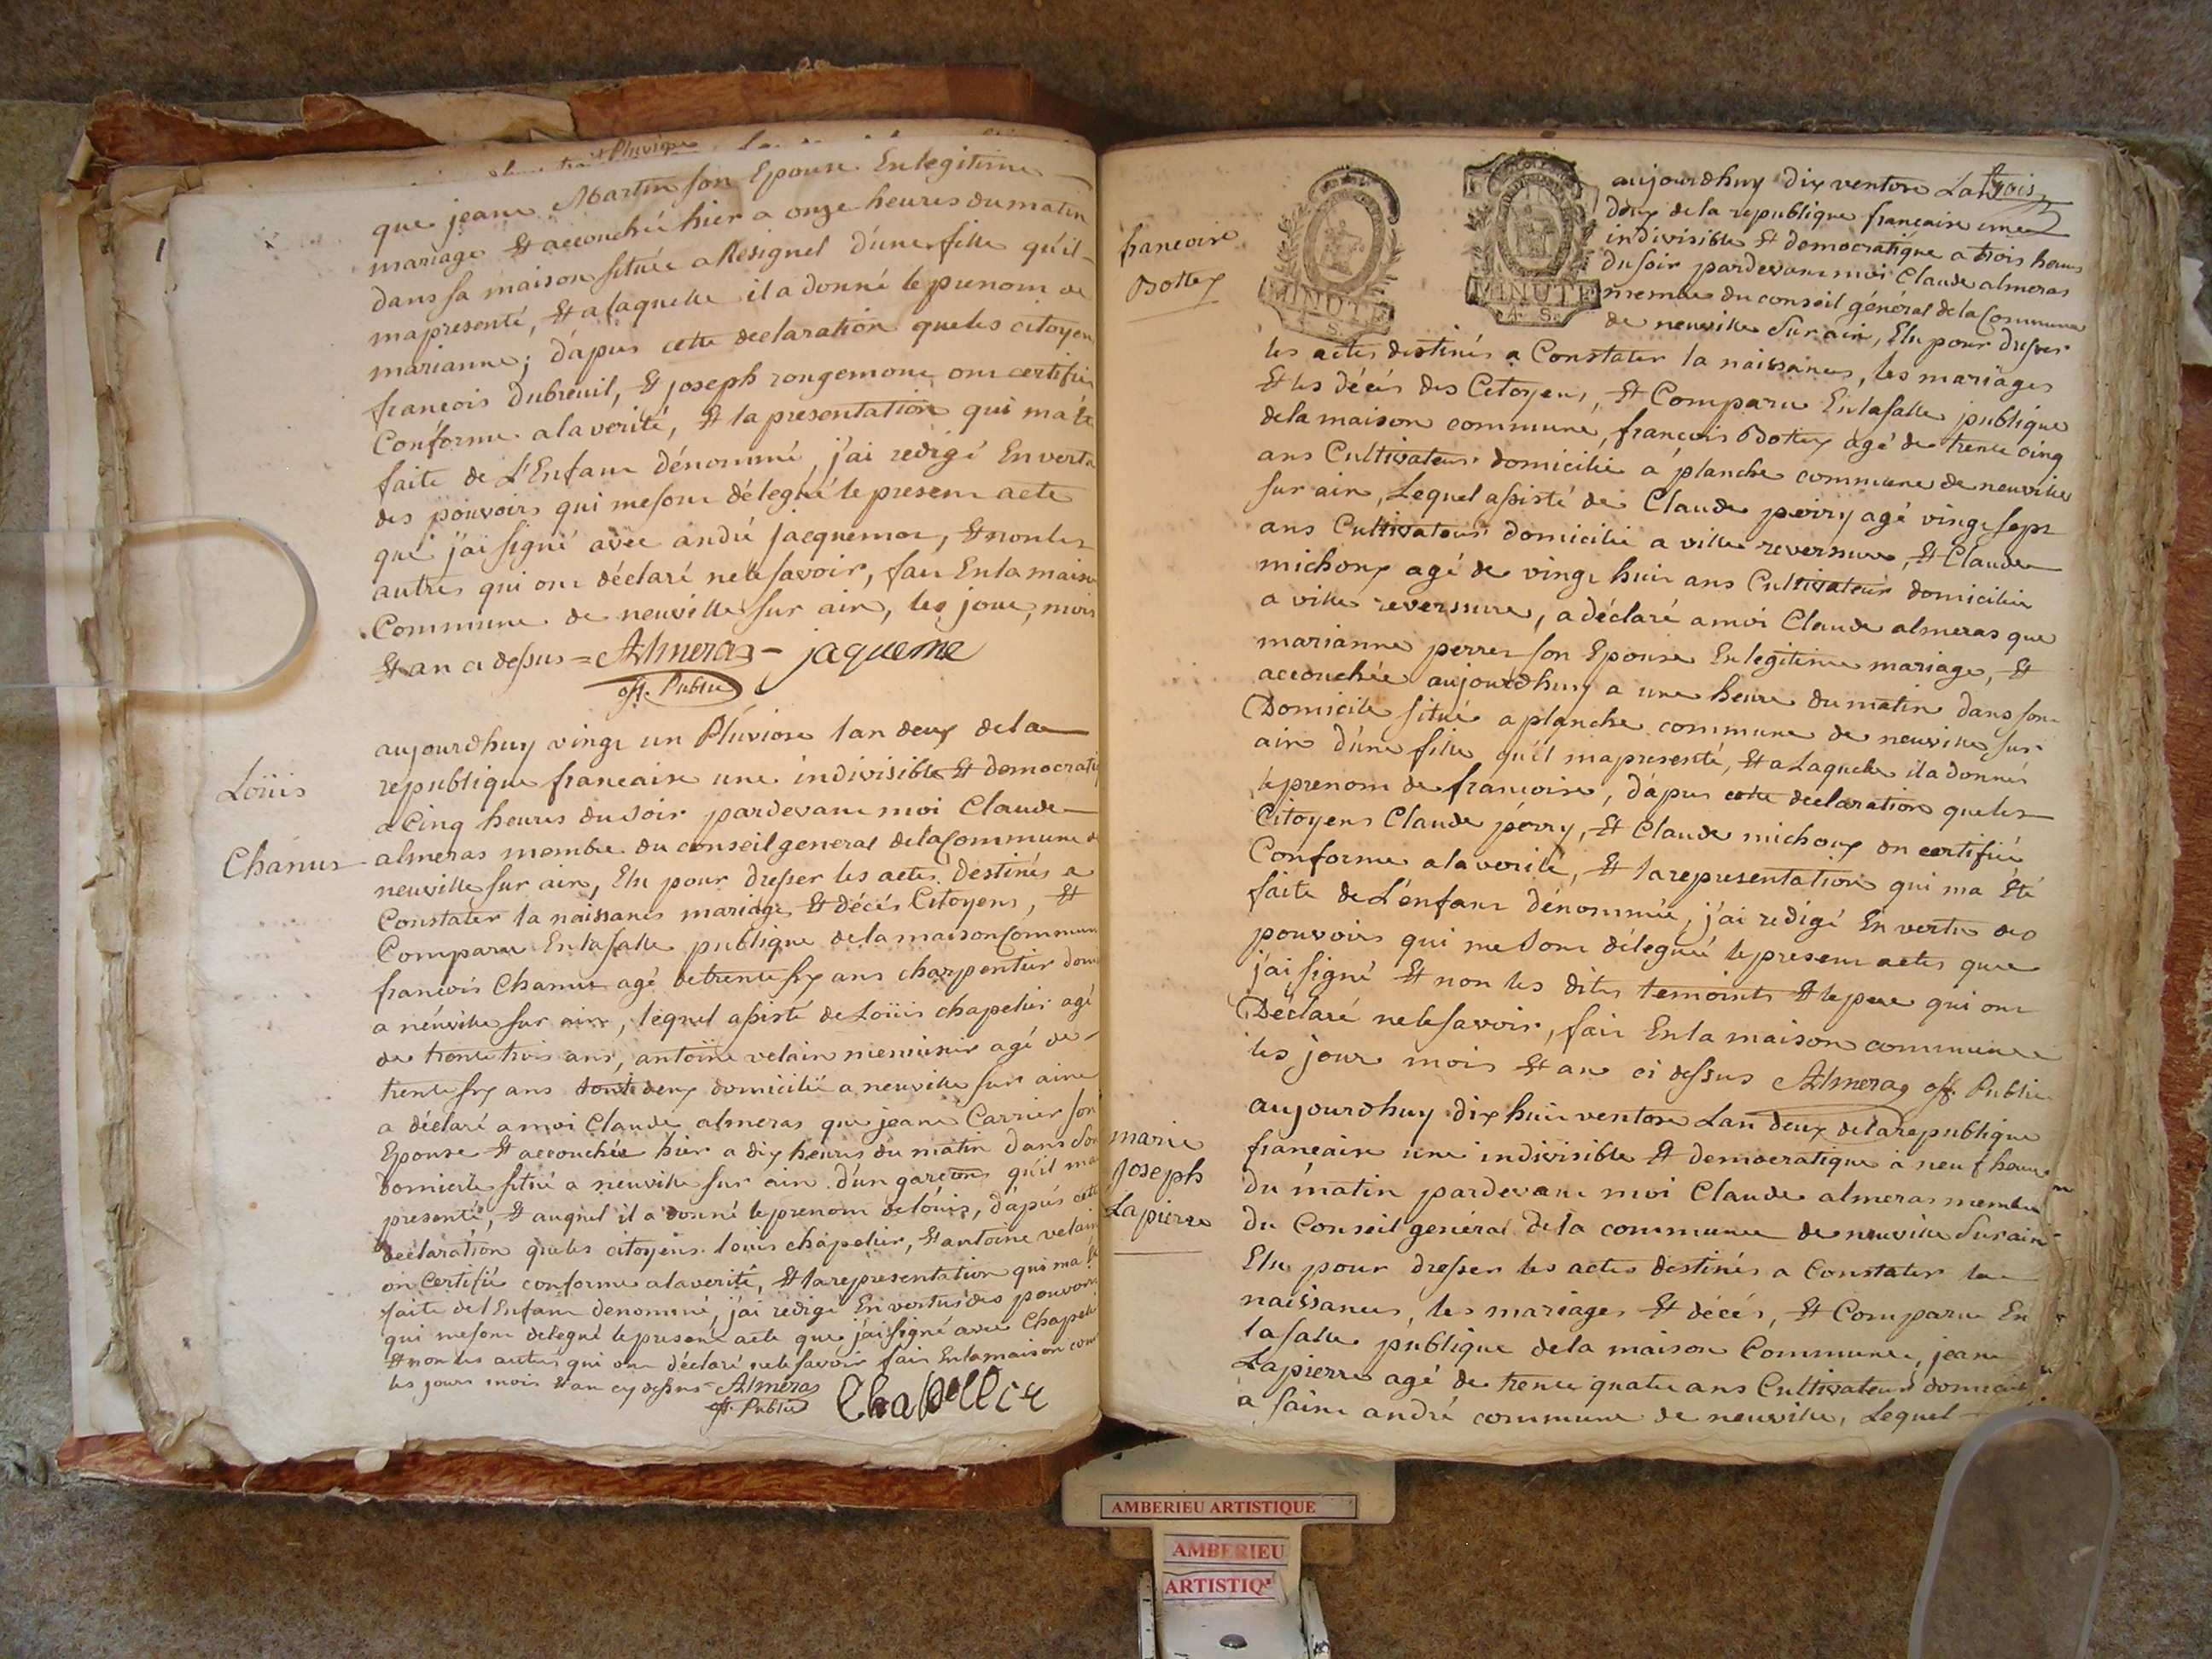 Pluviose
que jeane Martin son Epouse En legitime
mariage Et accouchée hier a onze heures du matin
dans sa maison située a Resignel d'une fille qu'il
ma presenté, Et a laquelle il a donné le prenom de
marianne; d'apres cette declaration que les citoyen
francois Dubreuil, Et joseph rongemont ont certifié
Conforme a la verité, Et la presentation qui ma été
faite de L'Enfant dénommé, j'ai redigé En vertu
des pouvoirs qui me sont délegué le present acte
que j'ai signé avec andré jacquemot, Et non les
autres qui ont déclaré ne le savoir, fait En la maison
Commune de neuville sur ain, les jour, mois
Et an ci dessus = Almeras - jaqueme
off. Public
Loüis
Chanut
aujourdhuy vingt un Pluviose lan deux de la
republique francaise une indivisible Et democrati
a Cinq heures du soir pardevant moi Claude
almeras membre du conseil general de la Commune de
neuville sur ain, Elu pour dresser les actes destinés a
Constater la naissances mariages Et décés Citoyens, Et
Comparu En la salle publique de la maison Commun
francois Chanut agé de trente six ans charpentier domi
a néuville sur ain, lequel assisté de Loüis chapelier agé
de trente trois ans, antoine velain menuisier agé de
trente six ans tout deux domicilié a neuville sur ain
a déclaré a moi Claude almeras que jeane Carrier son
Epouse Et accouchée hier a dix heures du matin dans son
domicile situé a neuville sur ain d'un garcon qu'il ma
presenté, Et auquel il a donné le prenom de loüis, d'aprés cette
declaration que les citoyens louis chapelier, Et antoine velain
on Certifié conforme a la verité, Et la representation qui ma été
faite de l'Enfant denommé, j'ai redigé En vertus des pouvoirs
qui me sont delegué le present acte que j'ai signé avec Chapeli
Et non les autres qui ont déclaré ne le savoir fait En la maison com
les jours mois Et an cy dessus = Almeras
off. Public Chapellie
francoise
Bottex
MINUTE
MINUTE
aujourdhuy dix ventose Lan trois
deux de la republique francaise une
indivisible Et democratique a trois heures
du soir pardevant moi Claude almeras
membre du conseil général de la Commune
de neuville sur ain, Elu pour dresser
les actes destinés a Constater la naissances, les mariages
Et les décés des Citoyens, Et Comparu En la salle publique
de la maison commune, francois Bottex agé de trente cinq
ans Cultivateur domicilié a planche commune de neuville
sur ain, Lequel assisté de Claude perry agé vingt sept
ans Cultivateur domicilié a ville reversure, Et Claude
michoux agé de vingt huit ans Cultivateur domicilié
a ville reversure, a déclaré a moi Claude almeras que
marianne perret son Epouse En legitime mariage, Et
accouchée aujourdhuy a une heure du matin dans son
Domicile situé a planche commune de neuville sur
ain d'une fille qu'il ma presenté, Et a Laquelle il a donné
le prenom de francoise, d'apres cette declaration que les
Citoyens Claude pérry, Et Claude michoux on certifié
Conforme a la verité, Et la representation qui ma Eté
faite de L'énfant dénommée, j'ai redigé En vertu des
pouvoirs qui me sont délegué le present actes que
j'ai signé Et non les dits temoints Et le pere qui ont
Déclaré ne le savoir, fait En la maison commune
les jour mois Et an ci dessus Almeras off. Public
marie
joseph
Lapierre
aujourdhuy dix huit ventose Lan deux de la republique
francaise une indivisible Et democratique a neuf heure
du matin pardevant moi Claude almeras membre
du Conseil general de la commune de neuville sur ain
Elu pour dresser les actes destinés a Constater la
naissances, les mariages Et décés, Et Comparu En
la salle publique de la maison Commune, jean
Lapierre agé de trente quatre ans Cultivateur domicil
a saint andré commune de neuville, Lequel
AMBERIEU ARTISTIQUE
AMBERIEU
ARTISTIQ